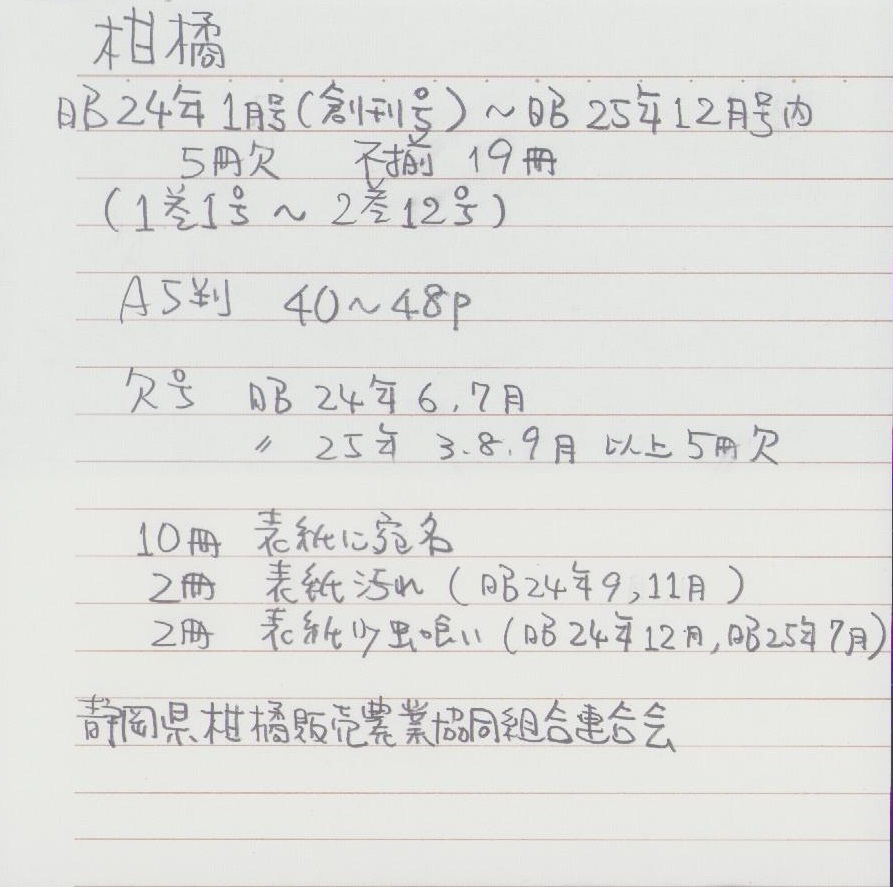 柑橘
昭24年1月号(創刊号)~昭25年12月号内
5冊欠 不揃 19冊
(1巻1号~2巻12号)
A5判 40~48p
欠号 昭24年6,7月
〃 25年 3.8.9月 以上5冊欠
10冊 表紙に宛名
2冊 表紙汚れ(昭24年9,11月)
2冊 表紙少虫喰い(昭24年12月,昭25年7月)
静岡県柑橘販売農業協同組合連合会